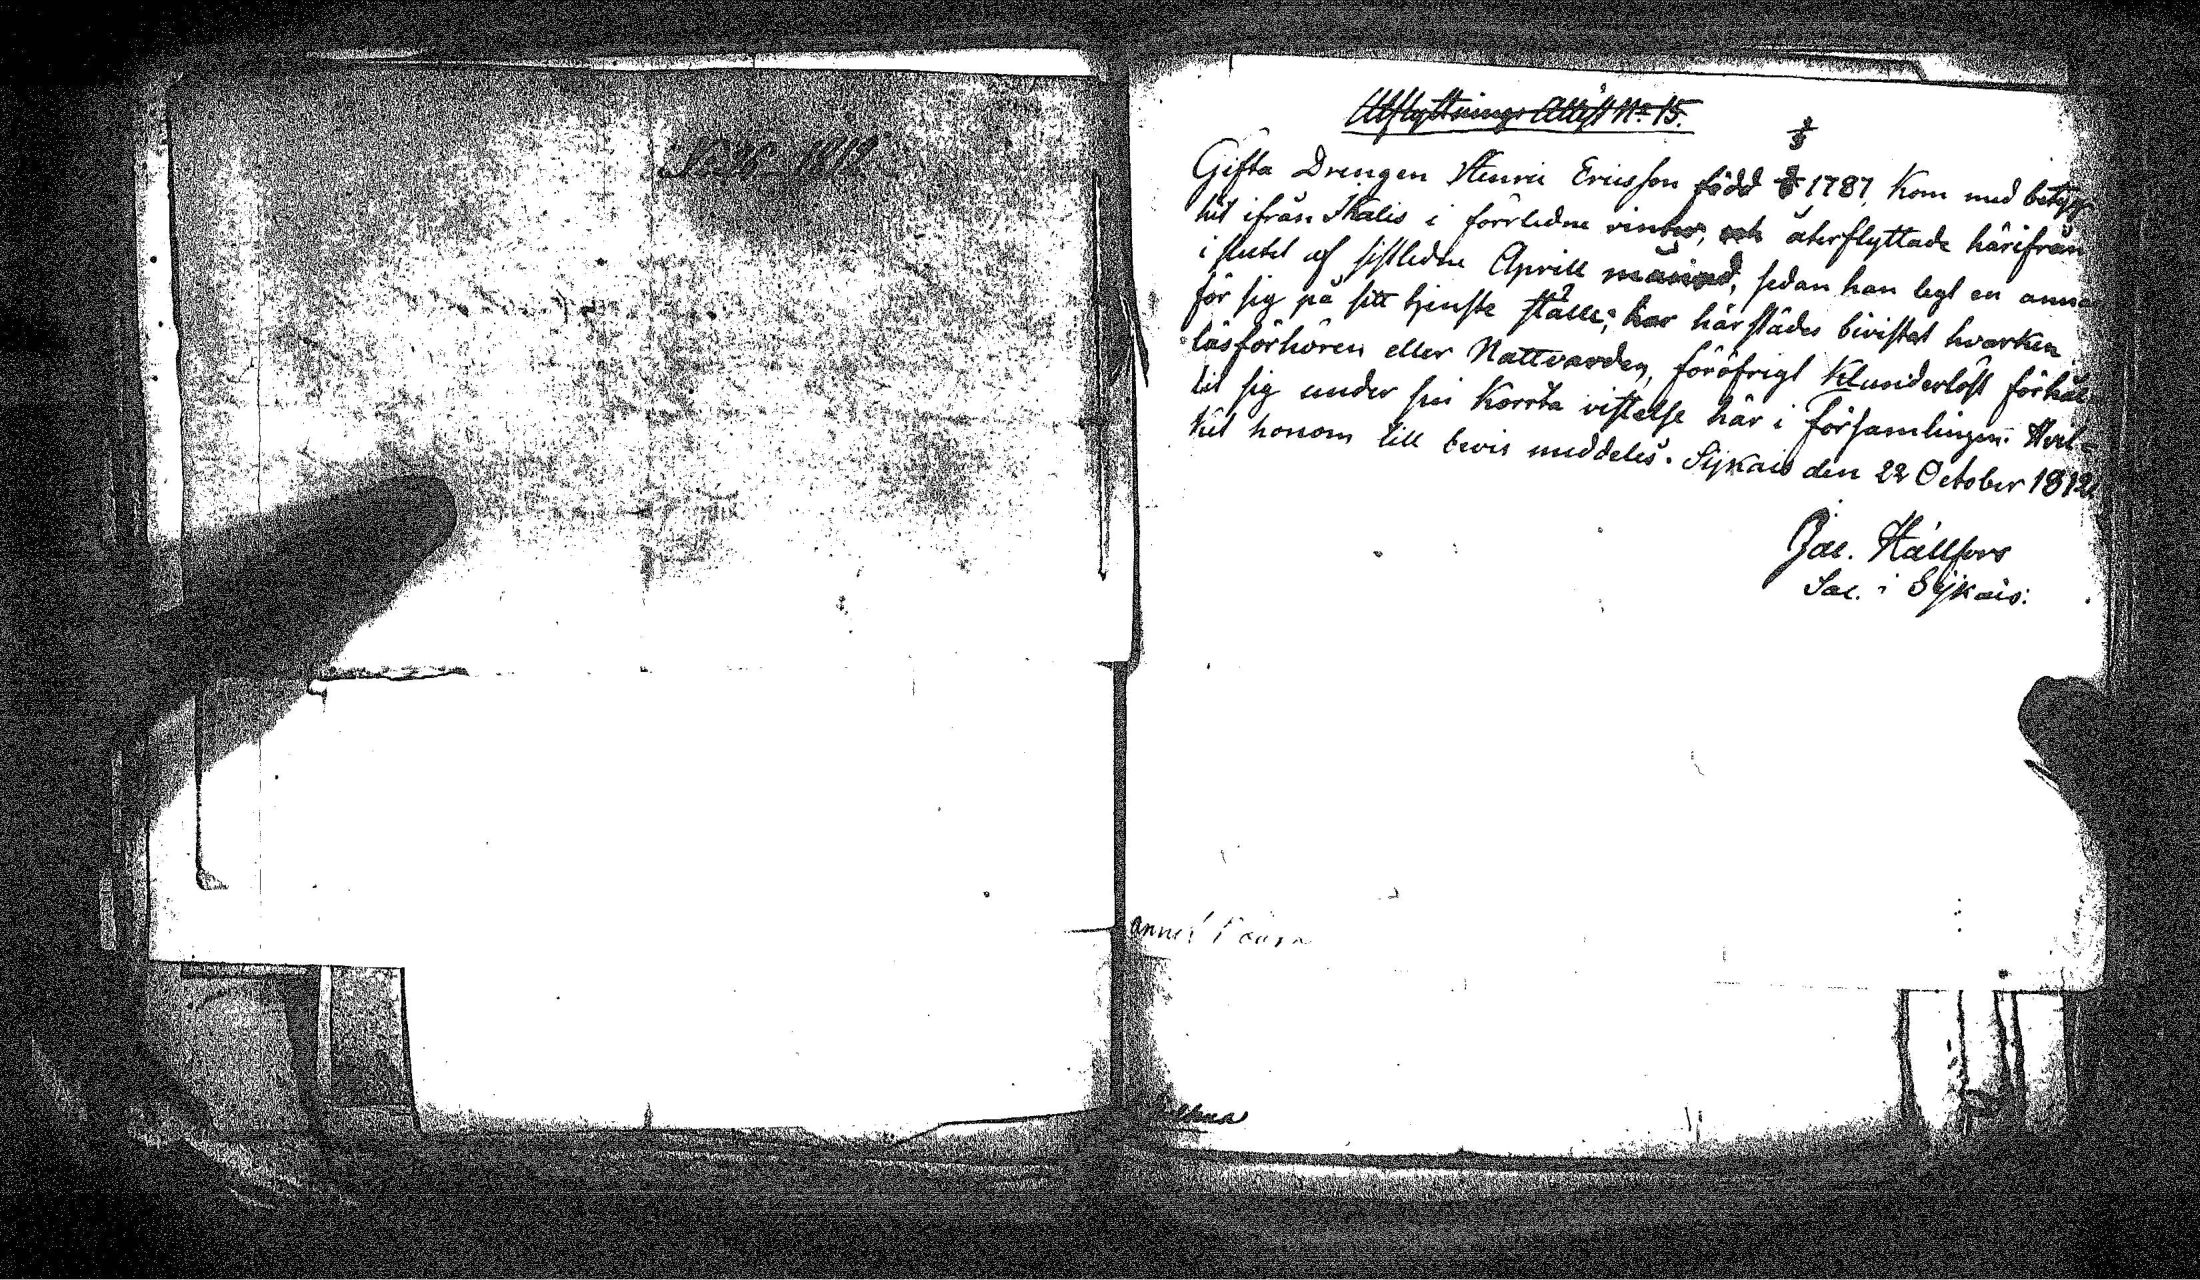 No 26 1812.
Utflyttnings Attest No 15.
Gifta Drengen Henric Ericsson född 1787, Kom med betyg
hit ifrån Kalis i förrledne vinter, och återflyttade härifrån
i slutet af sistledne Aprill månad, sedan han legt en anna
för sig på sitt tjenste ställe; har härstädes bivistat hvarken
läsförhören eller Nattvarden, föröfrigt Klanderlöst förhål
lit sig under sin Korrta vistelse här i församlingen. Hvil-
ket honom till bevis meddeles. Sijkais den 22 October 1812.
Jac. Hällfors
Sac. i Sijkais.